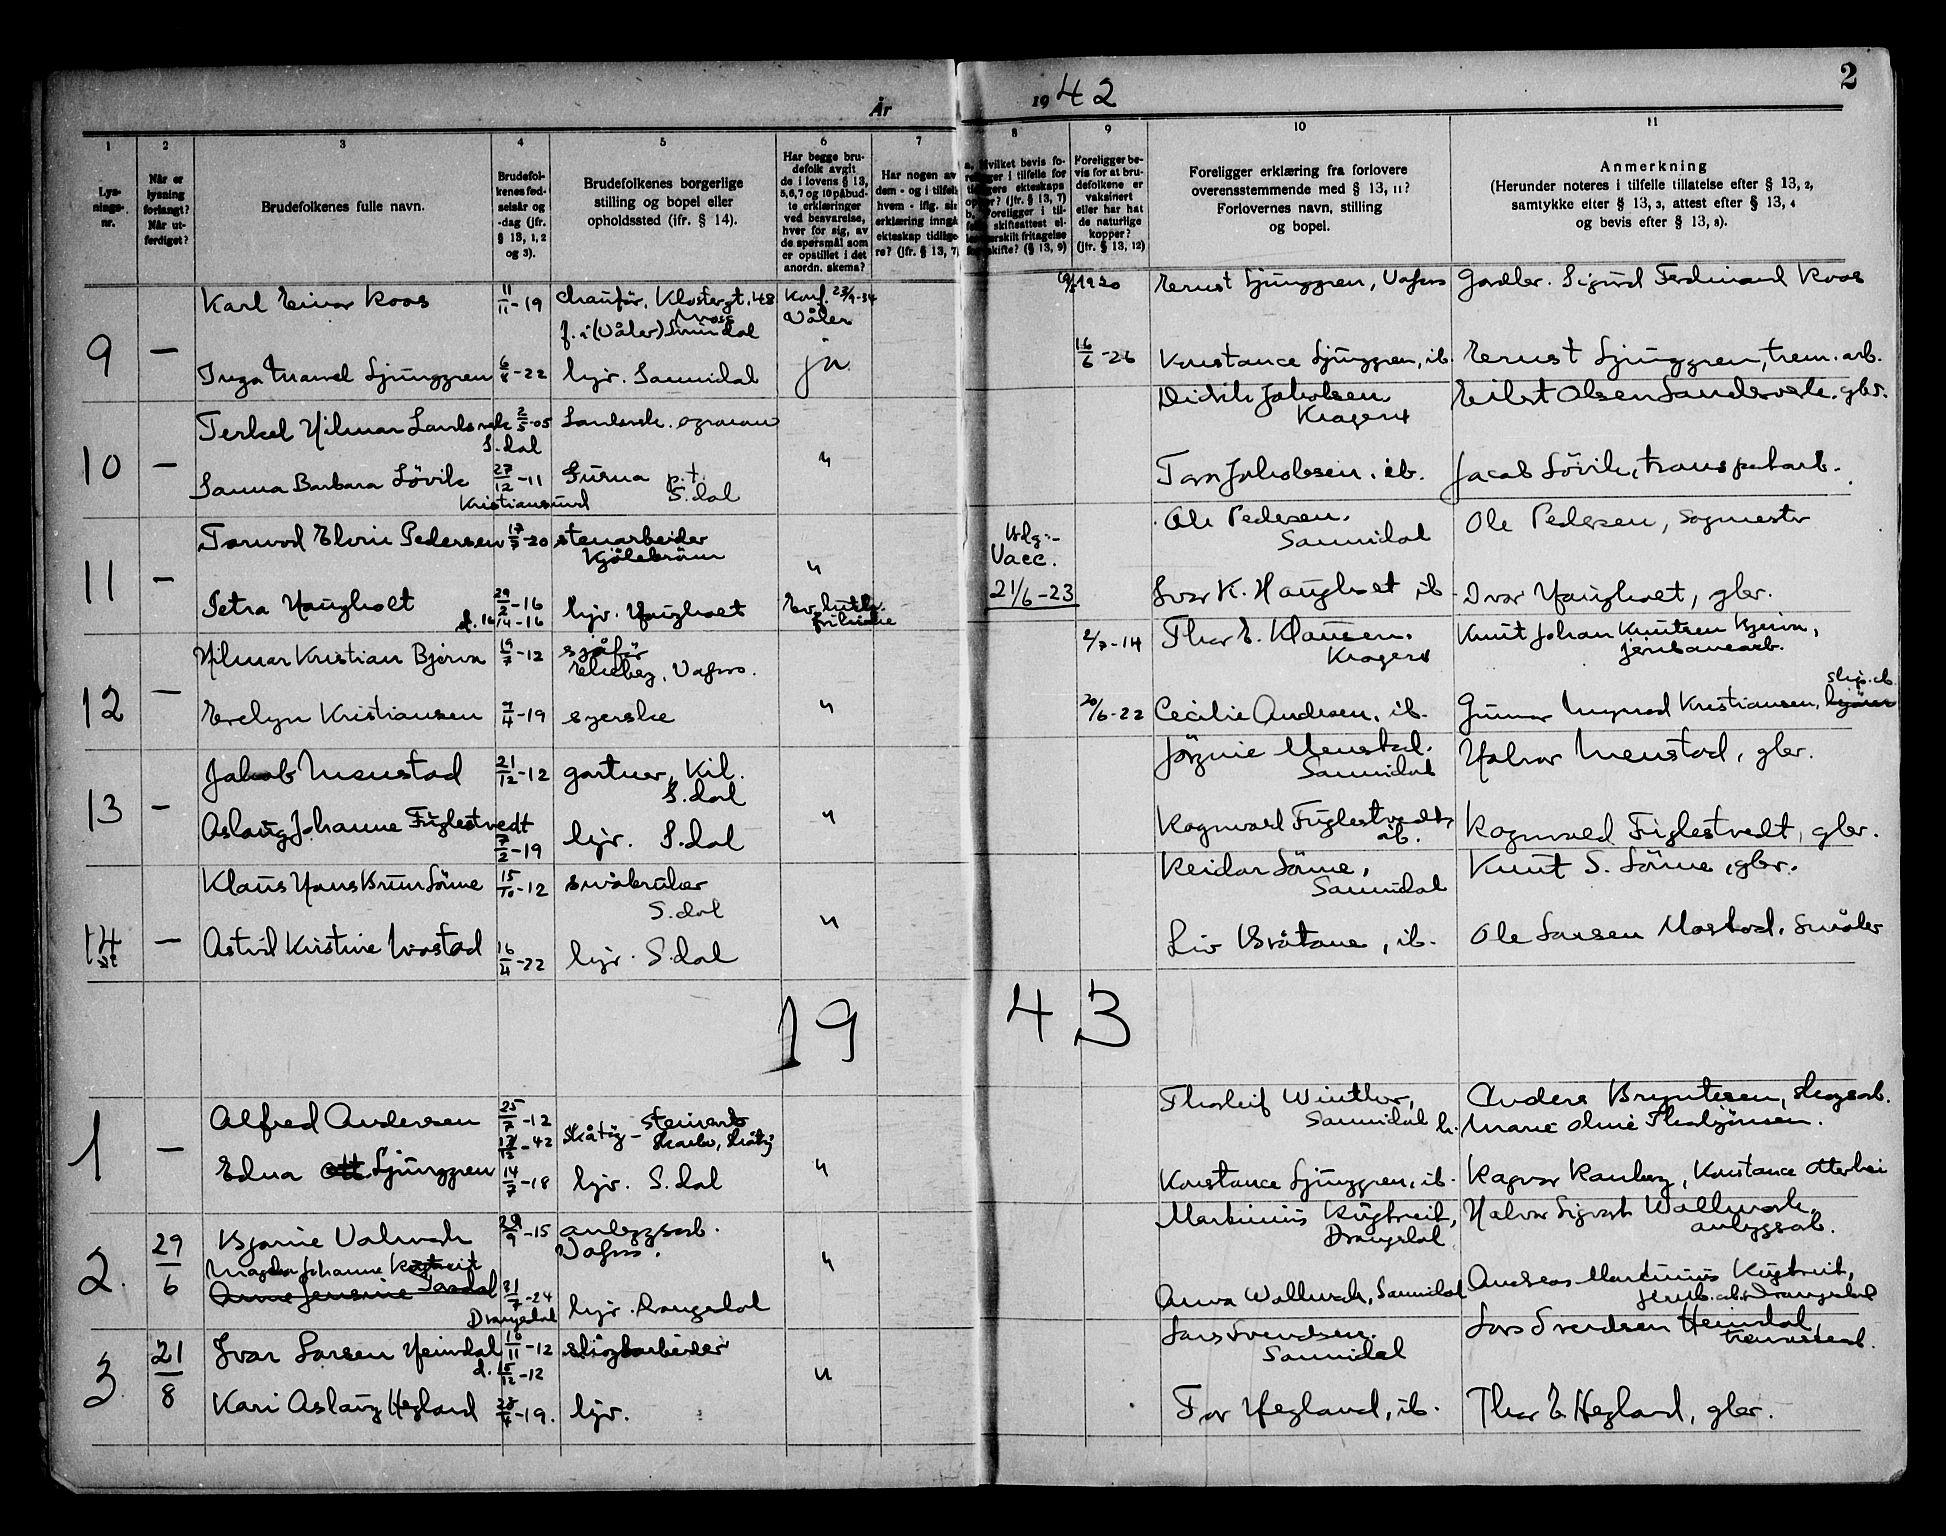 2
År 1942
1
2
3
4
5
6
7
8
9
10
11
Lys-
nings-
nr.
Når er
lysning
forlangt?
Når ut-
ferdiget?
Brudefolkenes fulle navn.
Brudefol-
kenes fød-
selsår og
-dag (jfr.
§ 13, 1, 2
og 3).
Brudefolkenes borgerlige
stilling og bopel eller
opholdssted (jfr. § 14).
Har begge bru-
defolk avgit
de i lovens § 13,
5, 6, 7 og 10 påbud-
te erklæringer
ved besvarelse,
hver for sig, av
de spørsmål som
er opstillet i det
anordn. skema?
Har nogen av
dem - og i tilfelle
hvem - iflg. sin
erklæring inngå
ekteskap tidlige-
re? (jfr. § 13, 7)
a. Hvilket bevis fo-
religger i tilfelle for
tidligere ekteskaps
ophør? (jfr. § 13, 7)
b. Foreligger i til-
skifteattest el-
særskilt fritagelse
skifte? (§ 13, 9)
Foreligger be-
vis for at bru-
defolkene er
vaksinert
eller har hat
de naturlige
kopper?
(jfr. § 13, 12)
Foreligger erklæring fra forlovere
overensstemmende med § 13, 11?
Forlovernes navn, stilling
og bopel.
Anmerkning
(Herunder noteres i tilfelle tillatelse efter § 13, 2,
samtykke efter § 13, 3, attest efter § 13, 4
og bevis efter § 13, 8).
9 — Karl Einar Roos 11/11-19 chaufør, Klostergt. 48 Moss Konf. 23/9-34 Våler
f. i (Våler) Sannidal
1920 Ernst Ljunggren, Vafoss Gardbr. Sigurd Ferdinand Roos
Inga Mawel Ljunggren 6/8-22 hjv. Sannidal ja. 16/6-26 Konstance Ljunggren, ib. Ernst Ljunggren, trem. arb.
10 — Terkel Hilmar Landsverk 2/5-05 Landsverk. agronom
S.dal
Didrik Jakobsen
Kragerø
Eilert Olsen Landsverk. gbr.
Sanna Barbara Lövik 27/12-11 Gurna p.t. S.dal "
Kristiansund
Tora Jakobsen. ib. Jacob Lövik, transportarb.
11 — Tormod Elvin Pedersen 17/7-20 stenarbeider
Kjölebrönn "
Udg:-
Vacc.
Ole Pedersen.
Sannidal
Ole Pedersen, sagmester
Petra Haugholt 29/2-16 hjv. Haugholt Ev. luth.
d. 16/4-16 frikirke
21/6-23 Ivar K. Haugholt ib. Ivar Haugholt, gbr.
12 — Hilmar Kristian Bjørva 19/7-12 sjåför
Ekeberg, Vafoss.
2/7-14 Thor E. Klausen.
Kragerø
Knut Johan Knutsen Bjørva,
jernbanearb.
Evelyn Kristiansen 7/4-19 syerske " 20/6-22 Cecilie Andresen, ib. Gunnar Kristiansen, slip. arb.
13 — Jakob Menstad 21/12-12 gartner, Kil.
S.dal
Jörgine Menstad.
Sannidal
Halvor Menstad, gbr.
Aslaug Johanne Fuglestvedt
7/2-19 hjv. S.dal "
Ragnvald Fuglestvedt,
ib.
Ragnvald Fuglestvedt, gbr.
14 — Klaus Hans Bruu Lönne 15/10-12 småbruker
S.dal "
Reidar Lönne,
Sannidal
Knut S. Lönne, gbr.
Astrid Kristine Mostad 16/4-22 hjv. S.dal
Liv Bråtane, ib. Ole Larsen Mostad, småbr
1943
1 — Alfred Andersen 25/7-12 steinarb
17/12-42 Skåtøy - Skarbo, Skåtøy
Thorleif Winther,
Sannidal
Anders Bryntesen, skogsarb.
h. Marie Oline Thorbjörnsen.
Edna Ott Ljunggren 14/7-18 hjv. S.dal " Konstance Ljunggren, ib. Ragnar Ramberg, Konstance Otterbei
2. 29/6 Bjarne Valmark 29/9-15 anleggsarb.
Vafoss.
Martinius Rugtveit,
Drangedal
Halvor Sigvart Wallmark,
anleggsarb.
Magda Johanne Rugtveit
Anne Jensine Tordal 31/7-24 hjv. Drangedal "
Drangedal
Anna Wallmark, Sannidal Andreas Martinius Rugtveit,
jernb. arb. Drangedal
3. 21/8 Ivar Larsen Heimdal 16/11-12 skogsarbeider
d. 15/12-12 "
Lars Svendsen.
Sannidal
Lars Svendsen Heimdal,
Kari Aslaug Hegland 28/4-19. hjv.
Tor Hegland, ib. Thor E. Hegland, gbr.